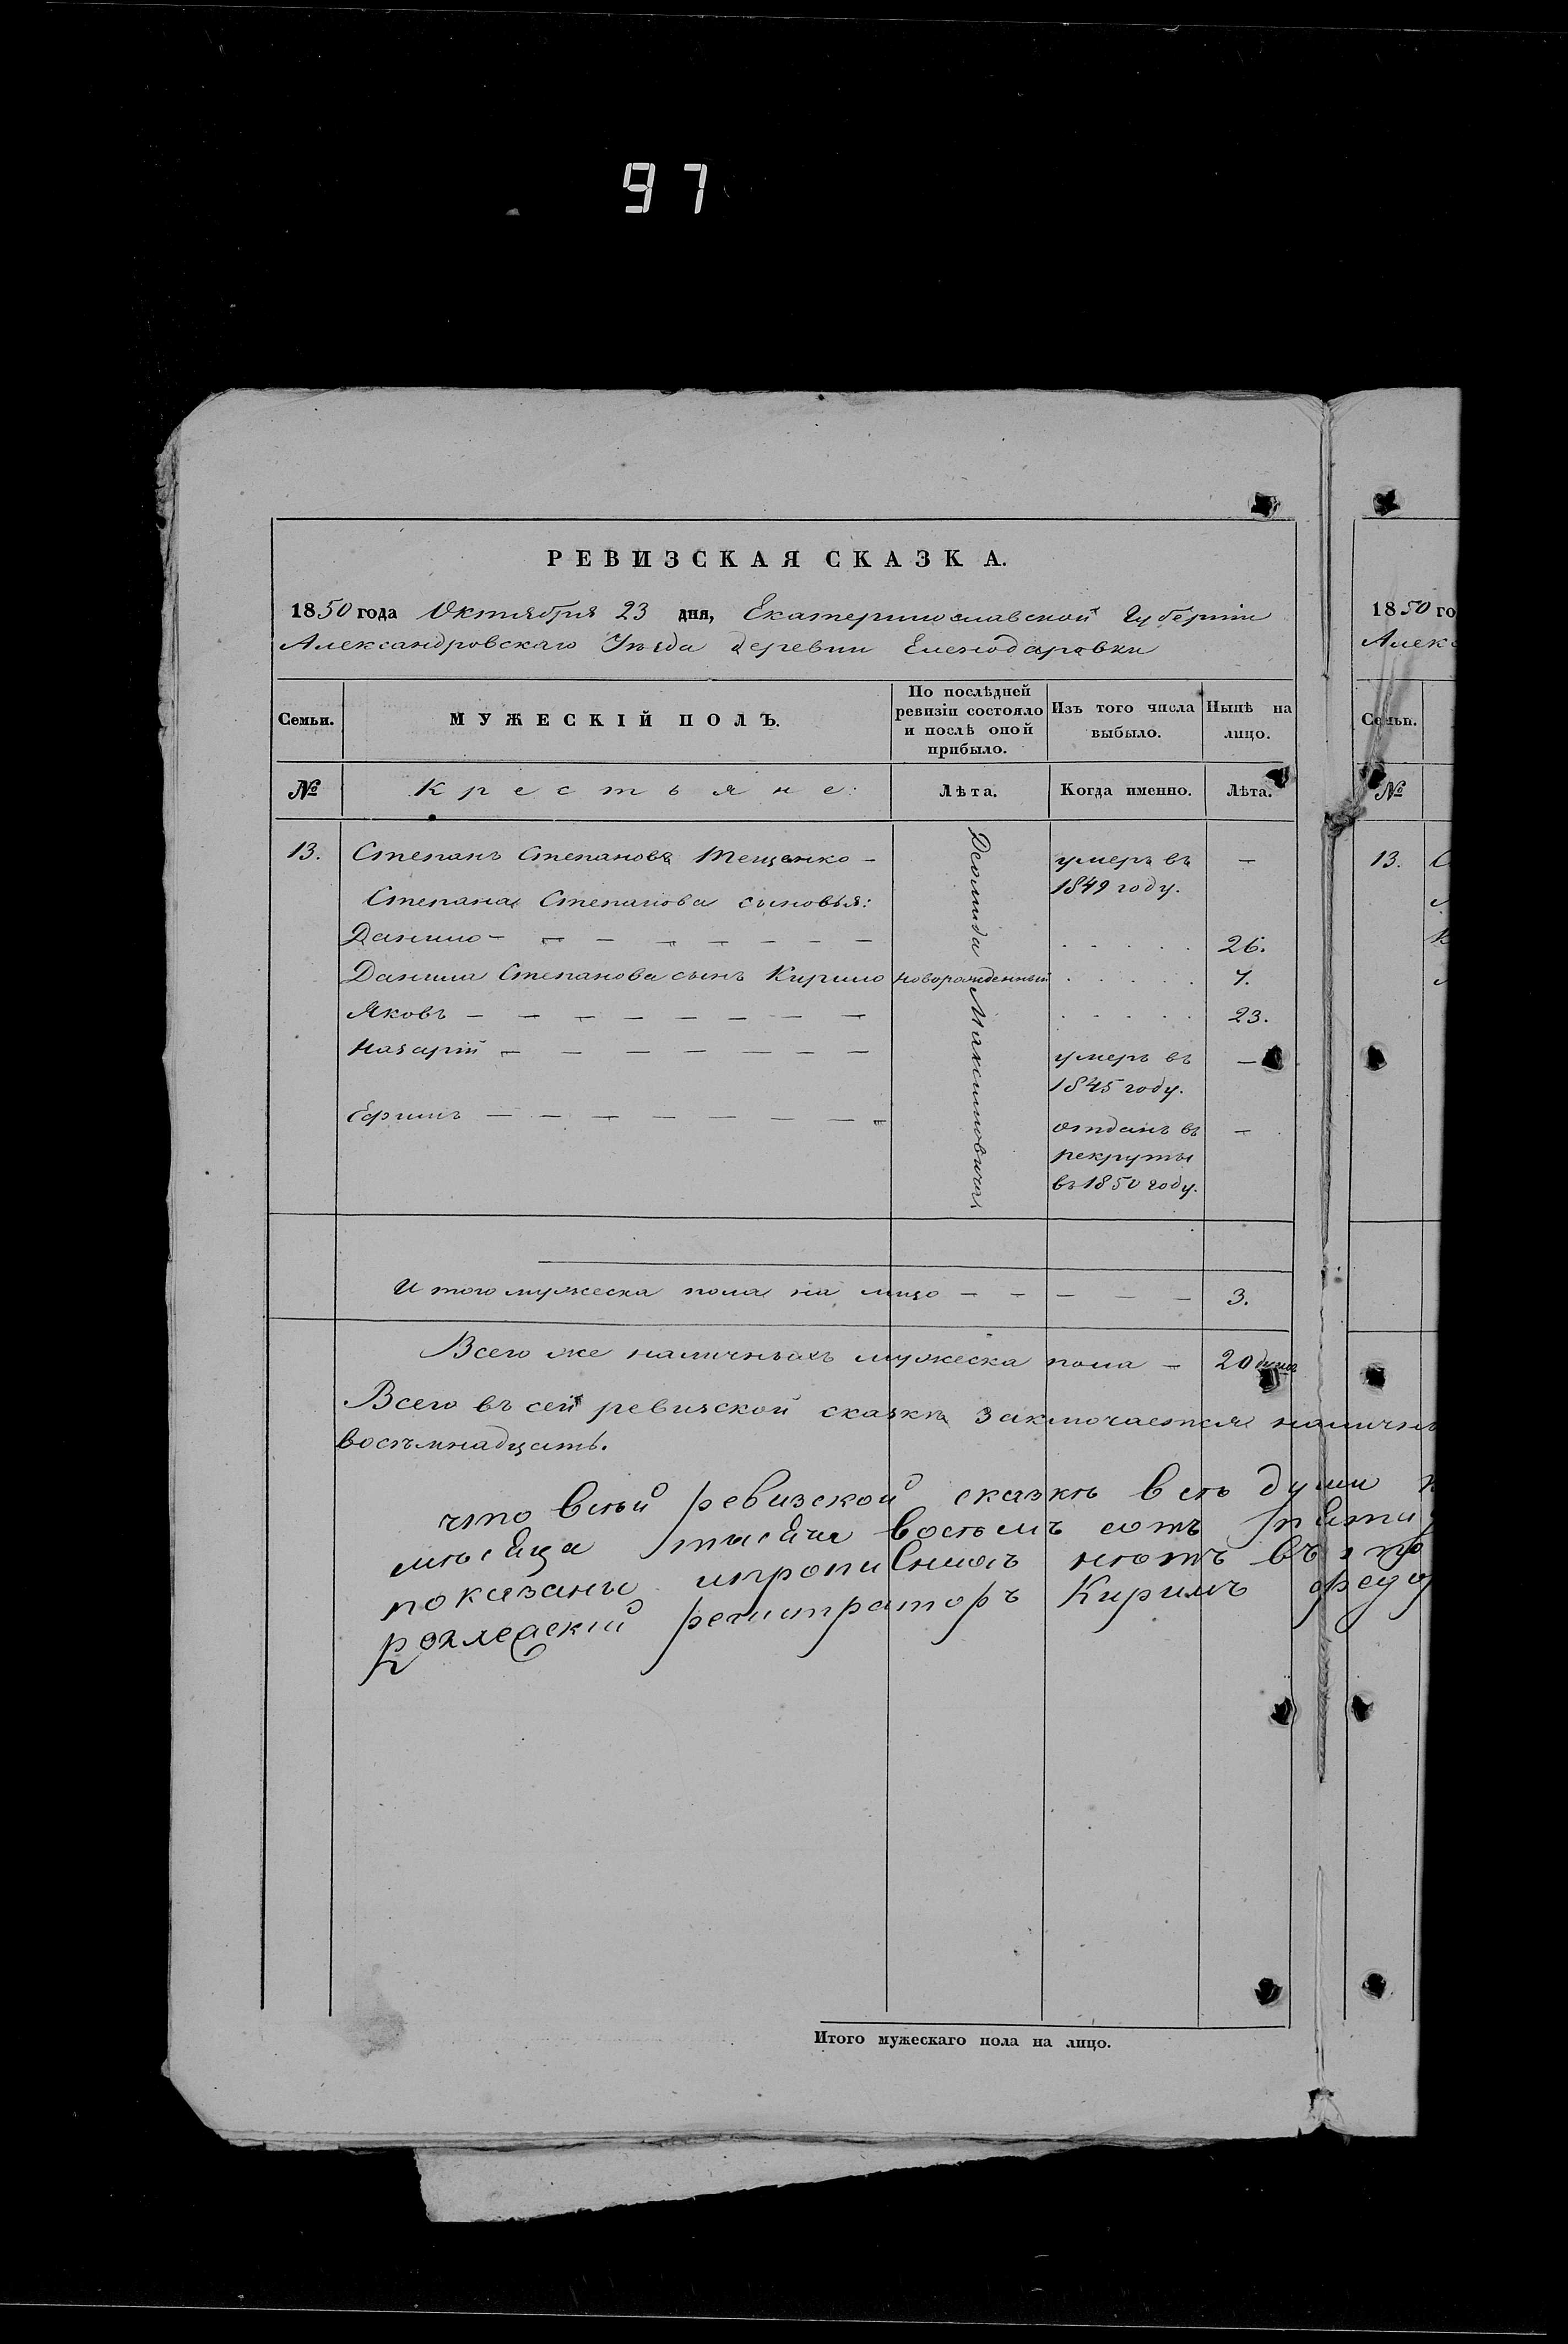 97
РЕВИЗСКАЯ СКАЗКА.
1850 года Октября 23 дня, Екатеринославской Губерніи
Александровскаго Уѣзда деревни Еленодаровки
Семьи.
МУЖЕСКІЙ ПОЛЪ.
По послѣдней ревизіи состояло и послѣ оной прибыло.
Изъ того числа выбыло.
Нынѣ на лицо.
№
Крестьяне:
Лѣта.
Когда именно.
Лѣта.
13. Степанъ Степановъ Тещенко - умеръ въ —
1849 году.
Степана Степанова сыновья:
Данило - — — — — — — — . . . . . 26.
Данила Степанова сынъ Кирило новорожденный . . . . . 7.
Яковъ — — — — — — — — . . . . . 23.
Назарій — — — — — — — умеръ въ —
1845 году.
Ефимъ — — — — — — — — отданъ въ —
рекруты
въ 1850 году.
Максимовича
Итого мужеска пола на лицо — — — — — 3.
Всего же наличныхъ мужеска пола — 20 душъ
Всего въ сей ревизской сказкѣ заключается наличн
восемнадцать.
что всѣй ревизской сказкѣ всѣ души
мѣсяца тысяча восѣмъ сотъ
показаны ипрописныхъ нѣтъ въ
регистраторъ Кирилъ
Итого мужескаго пола на лицо.
1850 го
Алекс
Семьи.
№
13.